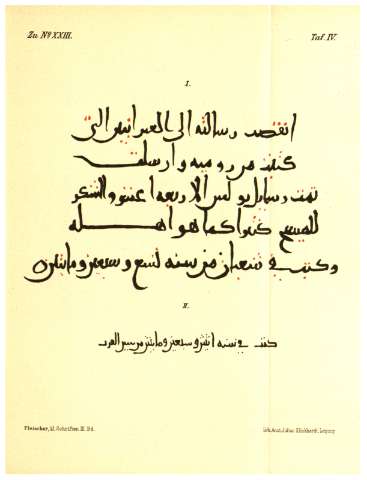 Zu Nº XXIII.
Taf. IV.
I.
انقضت رسالته الى العبرانيين التي
كتبت من روميه وارسلت
تمت رسايل بولس الاربعه عشر والشكر
للمسيح كثيرا كما هو اهله
وكتب في شعبان من سنه تسع وسبعين ومايتين
II.
كتب في سنه اثنتين وسبعين ومايتين من سني العرب
Fleischer, kl. Schriften III. Bd.
Lith. Anst. v. Jul. Klinkhardt, Leipzig